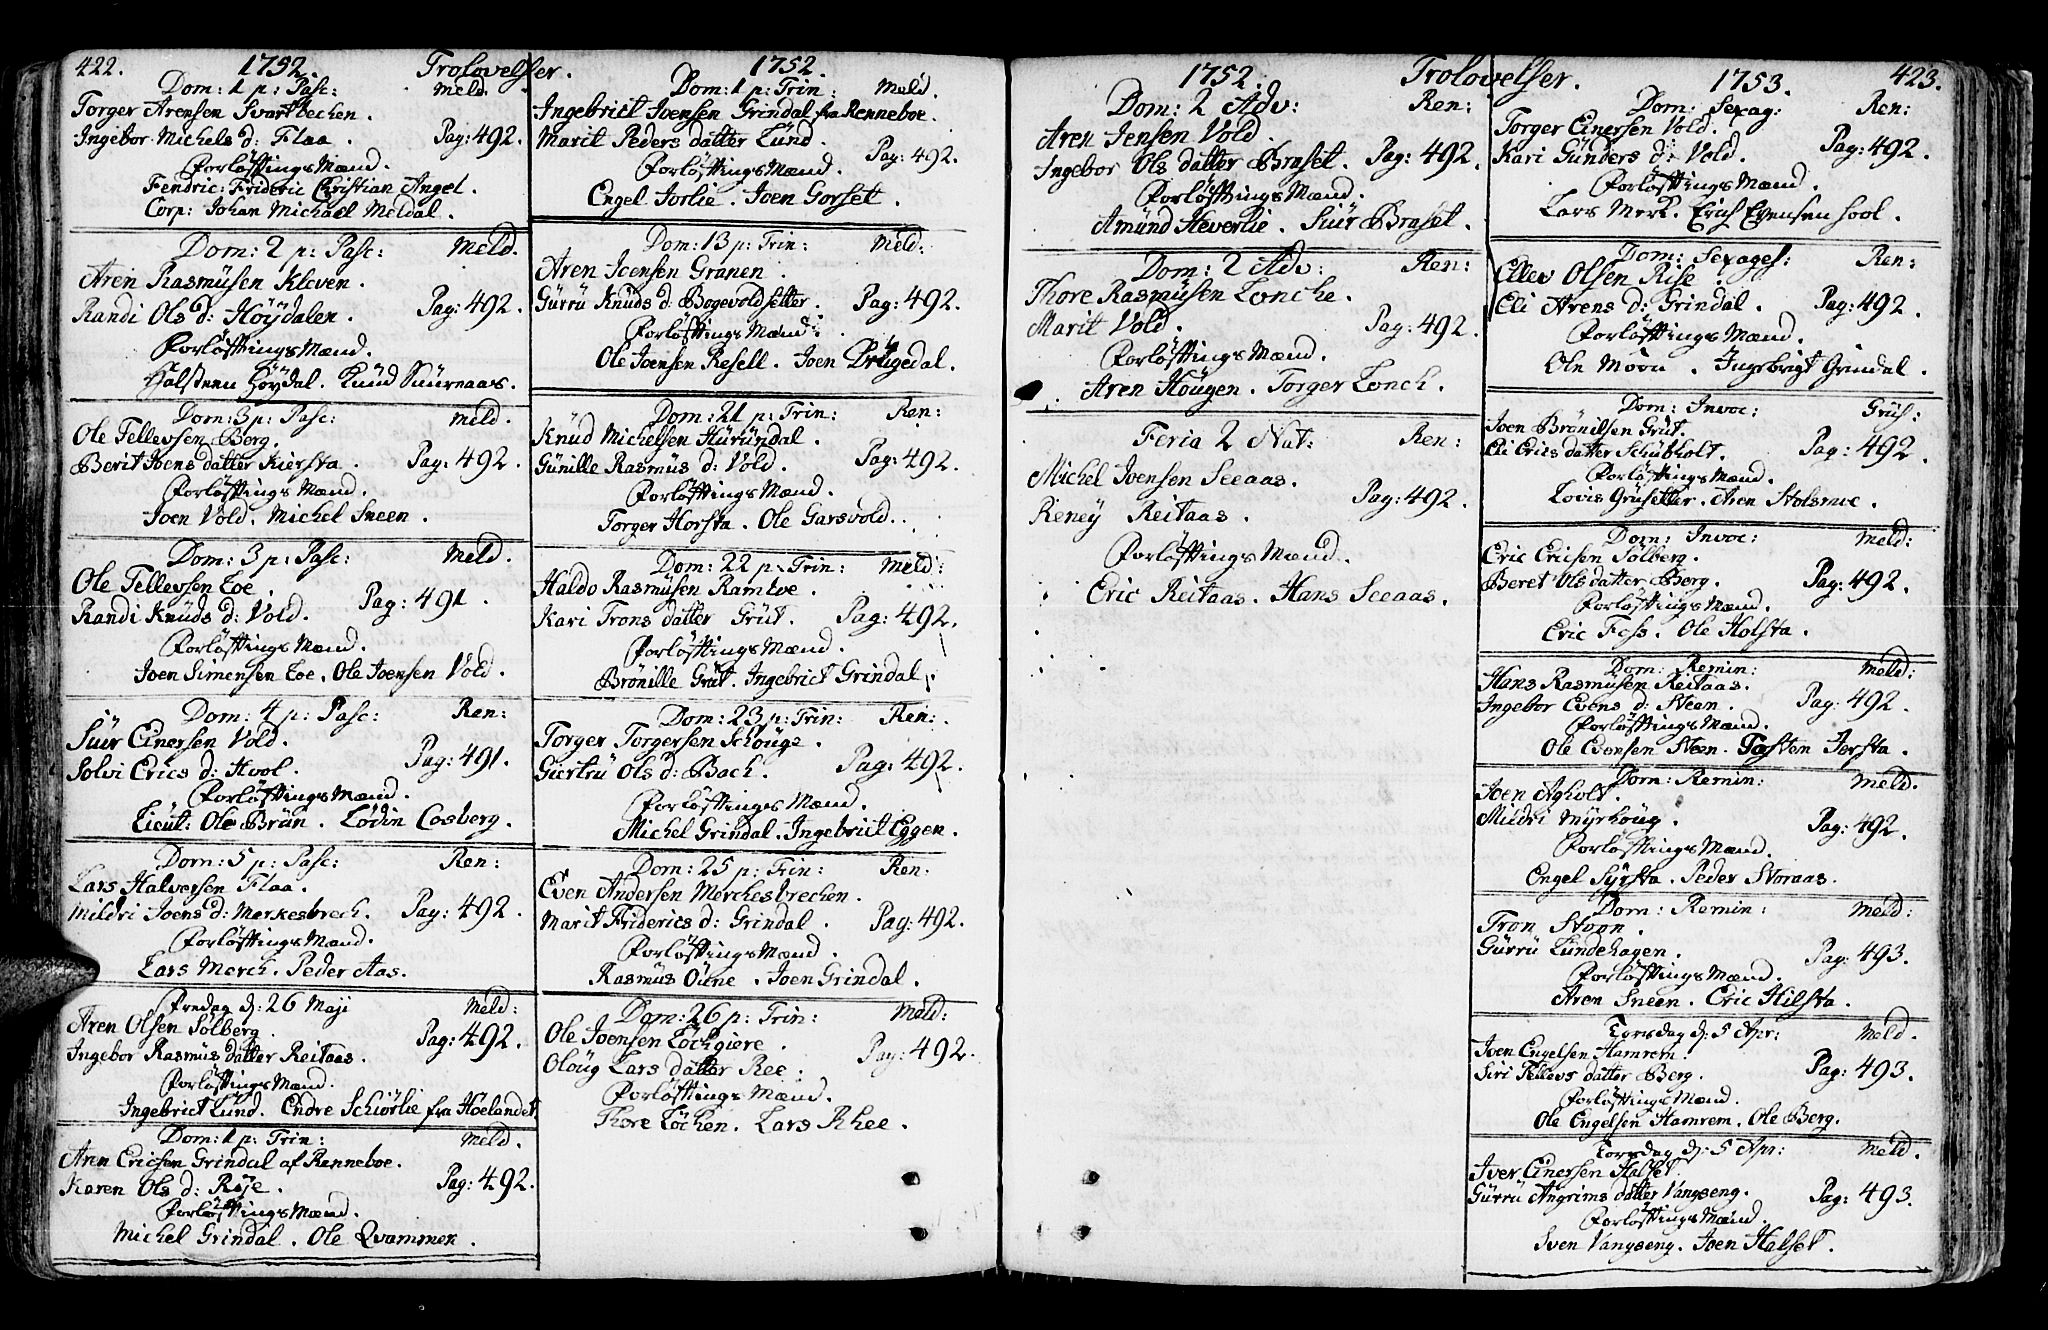 422. 1752. Trolovelser.
Dom: 1 p: Pasc: Meld.
Torger Arensen Svartbechen.
Ingebor Michels d: Flaa. Pag: 492.
Forlöfftings Mænd.
Fendric: Frideric Christian Angel.
Corp: Johan Michael Meldal.
Dom: 2 p: Pasc: Meld.
Aren Rasmüsen Kleven.
Randi Ols d: Höÿdalen. Pag: 492.
Forlöfftings Mænd.
Halsteen Höÿdal. Knud Suurnaas.
Dom: 3 p: Pasc: Meld.
Ole Tellevsen Berg.
Berit Joens datter Kiersta. Pag: 492.
Forlöfftings Mænd.
Joen Vold. Michel Sneen.
Dom: 3 p: Pasc: Meld.
Ole Tellevsen Loe.
Randi Knüds d: Vold. Pag: 491.
Forlöfftings Mænd.
Joen Simensen Loe. Ole Joensen Vold.
Dom: 4 p: Pasc: Ren:
Siur Einersen Vold.
Solvi Erics d: Hool. Pag: 491.
Forlöfftings Mænd.
Lieut: Ole Brün. Lödin Cosberg.
Dom: 5 p: Pasc: Ren:
Lars Halversen Flaa.
Mildri Joens d: Merkesbrech. Pag: 492.
Forlöfftings Mænd.
Lars Merch. Peder Aas.
Fredag d: 26 Maji Meld:
Aren Olsen Solberg.
Ingebor Rasmüs datter Reitaas. Pag: 492.
Forlöfftings Mænd.
Ingebrict Lund. Endre Schiörlie fra Hoelandet.
Dom: 1 p: Trin: Meld.
Aren Ericsen Grindal af Renneboe.
Karen Ols d: Röse. Pag: 492.
Forlöfftings Mænd.
Michel Grindal. Ole Qvammen.
1752.
Dom: 1 p: Trin: Meld.
Ingebrict Joensen Grindal fra Renneboe.
Marit Peders datter Lund. Pag: 492.
Forlöfftings Mænd.
Engel Jorlie. Joen Gorset.
Dom: 13 p: Trin: Meld:
Aren Joensen Granen.
Gürrü Knüds d: Bogevoldsetter. Pag: 492.
Forlöfftings Mænd:
Ole Joensen Resell. Joen Drugedal.
Dom: 21 p: Trin: Ren:
Knüd Michelsen Hüründal.
Günille Rasmüs d: Vold. Pag: 492.
Forlöfftings Mænd.
Torger Horsta. Ole Garsvold.
Dom: 22 p: Trin: Meld:
Haldo Rasmüsen Ramloe.
Kari Trons datter Grüt. Pag: 492.
Forlöfftings Mænd.
Brönille Grüt. Ingebrict Grindal.
Dom: 23 p: Trin: Ren:
Torger Torgersen Schöuge.
Giertrü Ols d: Bach. Pag: 492.
Forlöfftings Mænd.
Michel Grindal. Ingebrict Eggen.
Dom: 25 p: Trin: Ren:
Even Andersen Merchesbrechen.
Marit Friderics d: Grindal. Pag: 492.
Forlöfftings Mænd.
Rasmus Öüne. Joen Grindal.
Dom: 26 p: Trin: Meld:
Ole Joensen Löchgiere.
Oloüg Lars datter Ree. Pag: 492.
Forlöfftings Mænd.
Thore Löchen. Lars Rhee.
1752. Trolovelser.
Dom: 2 Adv: Ren:
Aren Jensen Vold.
Ingebor Ols datter Braset. Pag: 492.
Forlöfftings Mænd.
Amünd Heverlie. Siür Braset.
Dom: 2 Adv: Ren:
Thore Rasmüsen Lonche.
Marit Vold. Pag: 492.
Forlöfftings Mænd.
Aren Höugen. Torger Lonch.
Feria 2 Nat: Ren:
Michel Joensen Seeaas.
Reneÿ Reitaas. Pag: 492.
Forlöfftings Mænd.
Eric Reitaas. Hans Seeaas.
1753. 423.
Dom: Sexag: Ren:
Torger Einersen Vold.
Kari Günders d: Vold. Pag: 492.
Forlöfftings Mænd.
Lars Merk. Erich Evensen Hool.
Dom: Sexages: Ren:
Ellev Olsen Rise.
Eli Arens d: Grindal. Pag: 492.
Forlöfftings Mænd.
Ole Moen. Ingebrigt Grindal.
Dom: Invoc: Grüs:
Joen Brönilsen Grüt.
Eli Erics datter Schübholt. Pag: 492.
Forlöfftings Mænd.
Lovis Grüsetter. Aren Stolsmoe.
Dom: Invoc: Meld:
Eric Ericsen Solberg.
Beret Ols datter Berg. Pag: 492.
Forlöfftings Mænd.
Eric Foss. Ole Holsta.
Dom: Remin: Meld:
Hans Rasmüsen Reitaas.
Ingebor Evens d: Steen. Pag: 492.
Forlöfftings Mænd.
Ole Evensen Steen. Torsten Jersta.
Dom: Remin: Meld.
Joen Agholt.
Mildri Myrhöug. Pag: 492.
Forlöfftings Mænd.
Engel Syrsta. Peder Storaas.
Dom: Remin: Meld:
Tron Stoen.
Gürrü Lundehagen. Pag: 493.
Forlöfftings Mænd.
Aren Sneen. Eric Hilsta.
Torsdag d: 5 Apr: Meld.
Joen Engelsen Hamrem.
Siri Tellevs datter Berg. Pag: 493.
Forlöfftings Mænd.
Ole Engelsen Hamrem. Ole Berg.
Torsdag d: 5 Apr: Meld.
Iver Einersen Halset.
Gürrü Angrims datter Vangseng. Pag: 493.
Forlöfftings Mænd.
Sven Vangseng. Joen Halset.